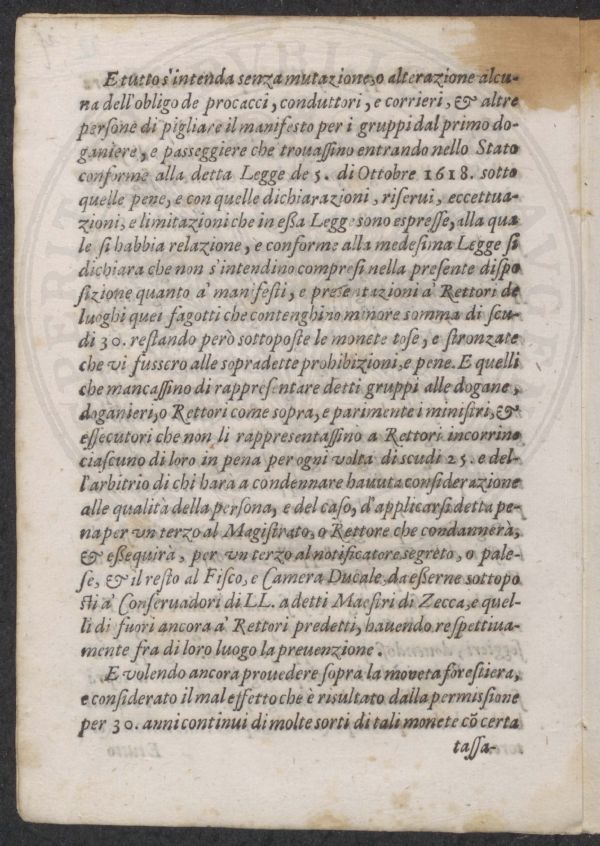 E tutto s'intenda senza mutazione, o alterazione alcu-
na dell'obligo de procacci, conduttori, e corrieri, & altre
persone di pigliare il manifesto per i gruppi dal primo do-
ganiere, e passeggiere che trouassino entrando nello Stato
conforme alla detta Legge de 5. di Ottobre 1618. sotto
quelle pene, e con quelle dichiarazioni, riserui, eccettua-
zioni, e limitazioni che in essa Legge sono espresse, alla qua
le si habbia relazione, e conforme alla medesima Legge si
dichiara che non s'intendino compresi nella presente dispo
sizione quanto a' manifesti, e presentazioni a' Rettori de
luoghi quei fagotti che contenghino minore somma di scu-
di 30. restando però sottoposte le monete tose, e stronzate
che vi fussero alle sopradette prohibizioni, e pene. E quelli
che mancassino di rappresentare detti gruppi alle dogane,
doganieri, o Rettori come sopra, e parimente i ministri, &
essecutori che non li rappresentassino a Rettori incorrino
ciascuno di loro in pena per ogni volta di scudi 25. e del-
l'arbitrio di chi hara a condennare hauuta considerazione
alle qualità della persona, e del caso, d'applicarsi detta pe-
na per vn terzo al Magistrato, o Rettore che condannerà,
& essequirà, per vn terzo al notificatore segreto, o pale-
se, & il resto al Fisco, e Camera Ducale, da esserne sottopo
sti a' Conseruadori di LL. a detti Maestri di Zecca, e quel-
li di fuori ancora a' Rettori predetti, hauendo respettiua-
mente fra di loro luogo la preuenzione.
E volendo ancora prouedere sopra la moneta forestiera,
e considerato il mal effetto che è risultato dalla permissione
per 30. anni continui di molte sorti di tali monete cõ certa
tassa-